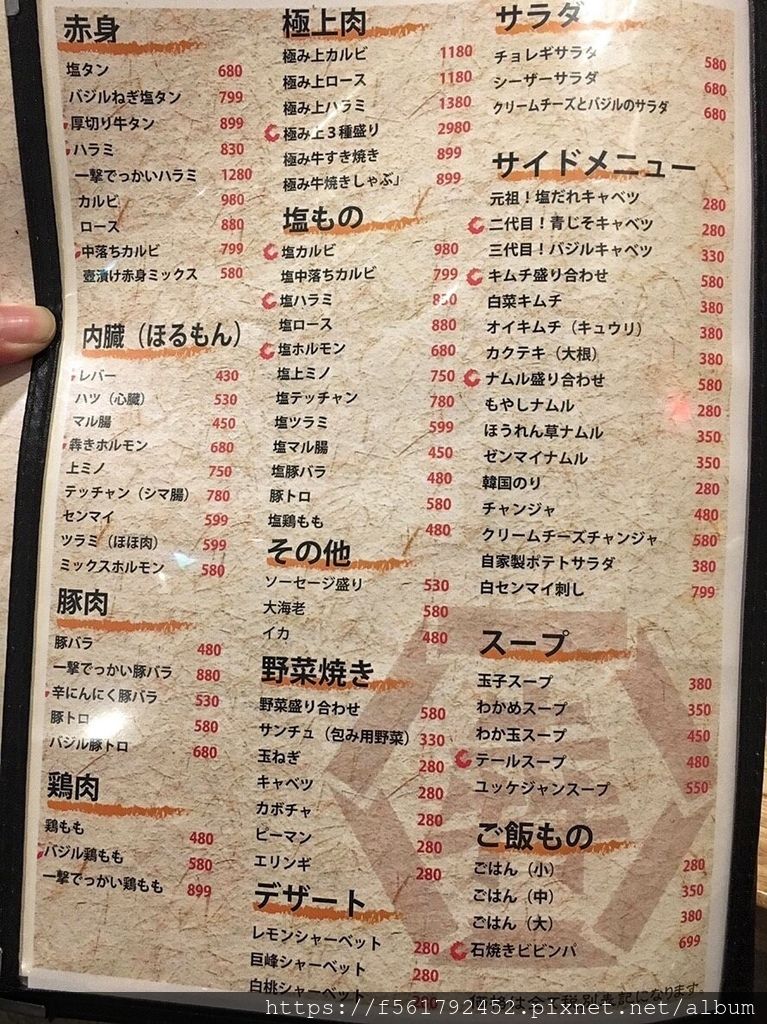 赤身
塩タン 680
バジルねぎ塩タン 799
厚切り牛タン 899
ハラミ 830
一撃でっかいハラミ 1280
カルビ 980
ロース 880
中落ちカルビ 799
壺漬け赤身ミックス 580
内臓（ほるもん）
レバー 430
ハツ（心臓） 530
マル腸 450
犇きホルモン 680
上ミノ 750
テッチャン（シマ腸） 780
センマイ 599
ツラミ（ほほ肉） 599
ミックスホルモン 580
豚肉
豚バラ 480
一撃でっかい豚バラ 880
辛にんにく豚バラ 530
豚トロ 580
バジル豚トロ 680
鶏肉
鶏もも 480
バジル鶏もも 580
一撃でっかい鶏もも 899
極上肉
極み上カルビ 1180
極み上ロース 1180
極み上ハラミ 1380
極み上３種盛り 2980
極み牛すき焼き 899
極み牛焼きしゃぶ」 899
塩もの
塩カルビ 980
塩中落ちカルビ 799
塩ハラミ
塩ロース 880
塩ホルモン 680
塩上ミノ 750
塩テッチャン 780
塩ツラミ 599
塩マル腸 450
塩豚バラ 480
豚トロ 580
塩鶏もも 480
その他
ソーセージ盛り 530
大海老 580
イカ 480
野菜焼き
野菜盛り合わせ 580
サンチュ（包み用野菜） 330
玉ねぎ 280
キャベツ 280
カボチャ 280
ピーマン 280
エリンギ 280
デザート
レモンシャーベット 280
巨峰シャーベット 280
白桃シャーベット
サラダ
チョレギサラダ 580
シーザーサラダ 680
クリームチーズとバジルのサラダ 680
サイドメニュー
元祖！塩だれキャベツ 280
二代目！青じそキャベツ 280
三代目！バジルキャベツ 330
キムチ盛り合わせ 580
白菜キムチ 380
オイキムチ（キュウリ） 380
カクテキ（大根） 380
ナムル盛り合わせ 580
もやしナムル 280
ほうれん草ナムル 350
ゼンマイナムル 350
韓国のり 280
チャンジャ 480
クリームチーズチャンジャ 580
自家製ポテトサラダ 380
白センマイ刺し 799
スープ
玉子スープ 380
わかめスープ 350
わか玉スープ 450
テールスープ 480
ユッケジャンスープ 550
ご飯もの
ごはん（小） 280
ごはん（中） 350
ごはん（大） 380
石焼きビビンパ 699
価格は全て税別表記になります。
https://f561792452.pixnet.net/album